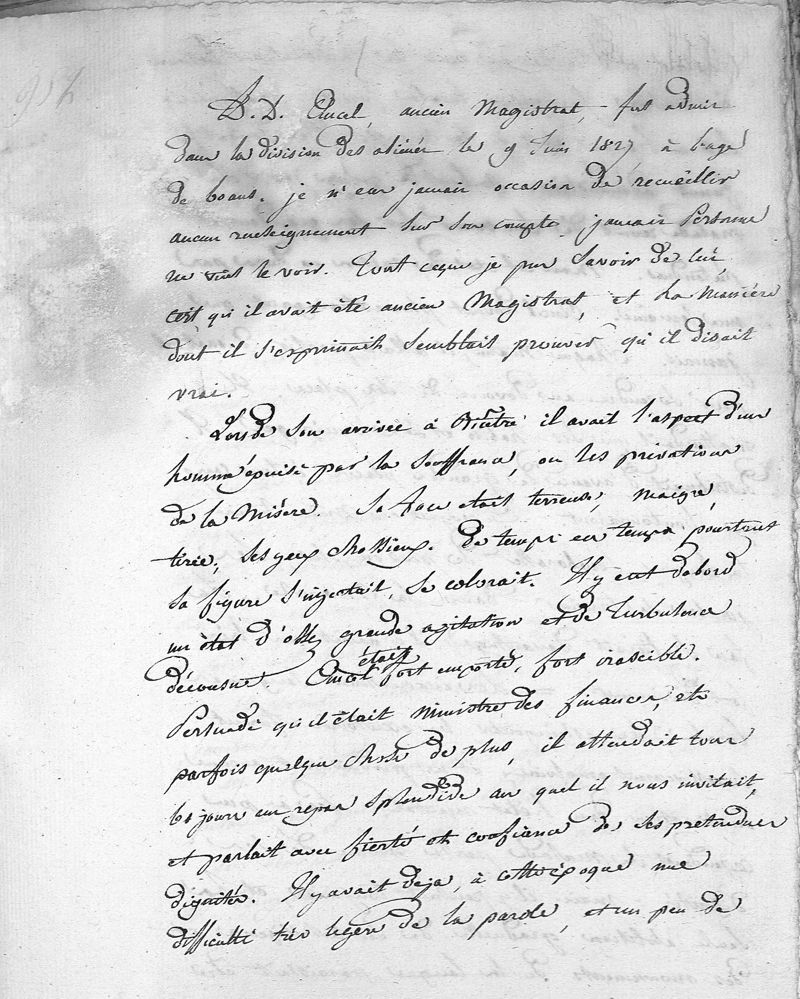 D. D. Emcel, ancien Magistrat, fut admis
dans la division des aliénés le 9 Juin 1827 à l'age
de 60 ans. je n'eus jamais occasion de recueillir
aucun renseignement sur son compte, jamais Personne
ne vint le voir. Tout ceque je pus savoir de lui
c'est qu'il avait été ancien Magistrat, et La Manière
dont il s'exprimait semblait prouver qu'il disait
vrai.
Lors de son arrivée à Bicêtre il avait l'aspect d'un
homme épuisé par la souffrance, ou les privations
de la Misère. Sa face etait terreuse, maigre,
tirée, ses yeux chassieux. De temps en temps pourtant
sa figure s'injectait, se colorait. Il y eut dabord
un état d'assez grande agitation et de Turbulence
décousue. était fort emporté, fort irascible.
Persuadé qu'il était Ministre des finances, et
parfois quelque chose de plus, il attendait tous
les jours un repas splendide au quel il nous invitait,
et parlait avec fierté et confiance de ses pretendues
dignités. Il y avait deja, à cette époque une
difficulté très legère de la parole, et un peu de